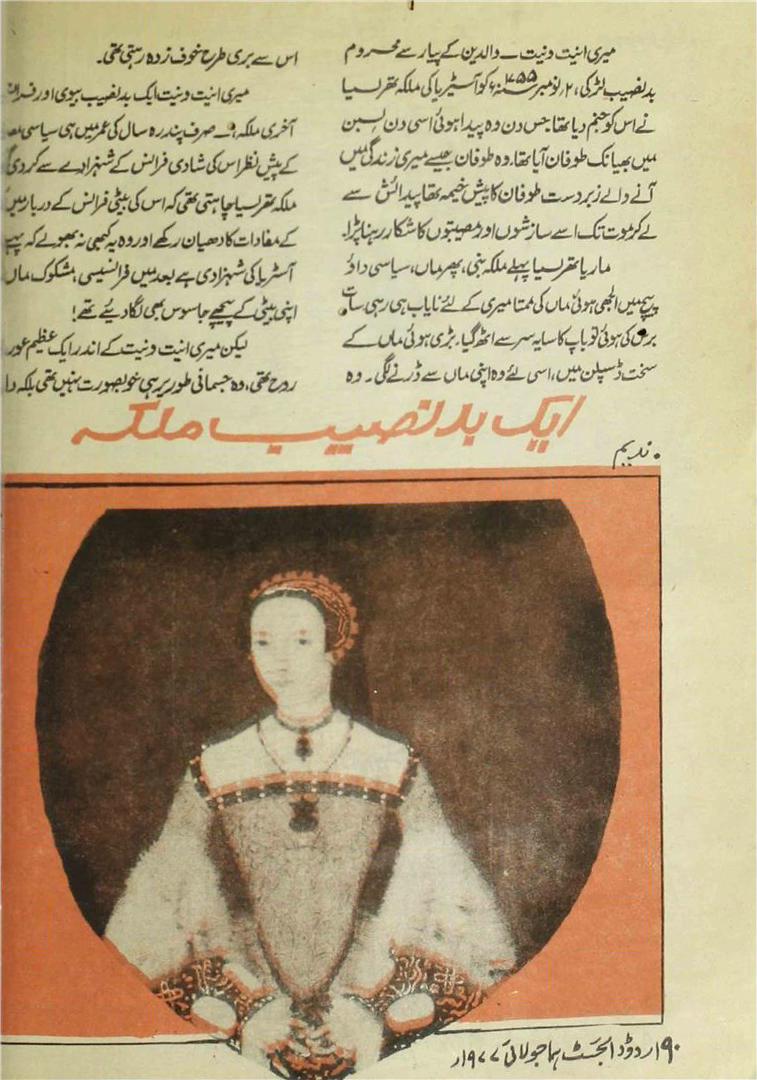 میری انیت ونیت ــ والدین کے پیار سے محروم
بدنصیب لڑکی، ۲ نومبر ۱۷۵۵ء کو آسٹریا کی ملکہ تھریسیا
نے اس کو جنم دیا تھا۔ جس دن وہ پیدا ہوئی اسی دن لسبن
میں بھیانک طوفان آیا تھا۔ وہ طوفان جیسے میری زندگی میں
آنے والے زبردست طوفان کا پیش خیمہ تھا پیدائش سے
لے کر موت تک اسے سازشوں اور مصیبتوں کا شکار رہنا پڑا۔
ماریا تھریسیا پہلے ملکہ بنی، پھر ماں، سیاسی داؤ
پیچ میں الجھی ہوئی ماں کی ممتا میری کے لئے نایاب ہی رہی سات
برس کی ہوئی تو باپ کا سایہ سر سے اٹھ گیا۔ بڑی ہوئی ماں کے
سخت ڈسپلن میں، اسی لئے وہ اپنی ماں سے ڈرنے لگی۔ وہ
اس سے بری طرح خوف زدہ رہتی تھی۔
میری انیت ونیت ایک بدنصیب بیوی اور
آخری ملکہ، صرف پندرہ سال کی عمر میں ہی سیاسی
کے پیش نظر اس کی شادی فرانس کے شہزادے سے کر دی
ملکہ تھریسیا چاہتی تھی کہ اس کی بیٹی فرانس کے دربار میں
کے مفادات کا دھیان رکھے اور وہ یہ کبھی نہ بھولے کہ پہلے
آسٹریا کی شہزادی ہے بعد میں فرانسیسی، مشکوک ماں
اپنی بیٹی کے پیچھے جاسوس بھی لگا دیئے تھے!
لیکن میری انیت ونیت کے اندر ایک عظیم
روح تھی، وہ جسمانی طور پر ہی خوبصورت نہیں تھی بلکہ
ایک بدنصیب ملکہ
• ندیم
۹۰ اردو ڈائجسٹ ہما جولائی ۱۹۷۷ء